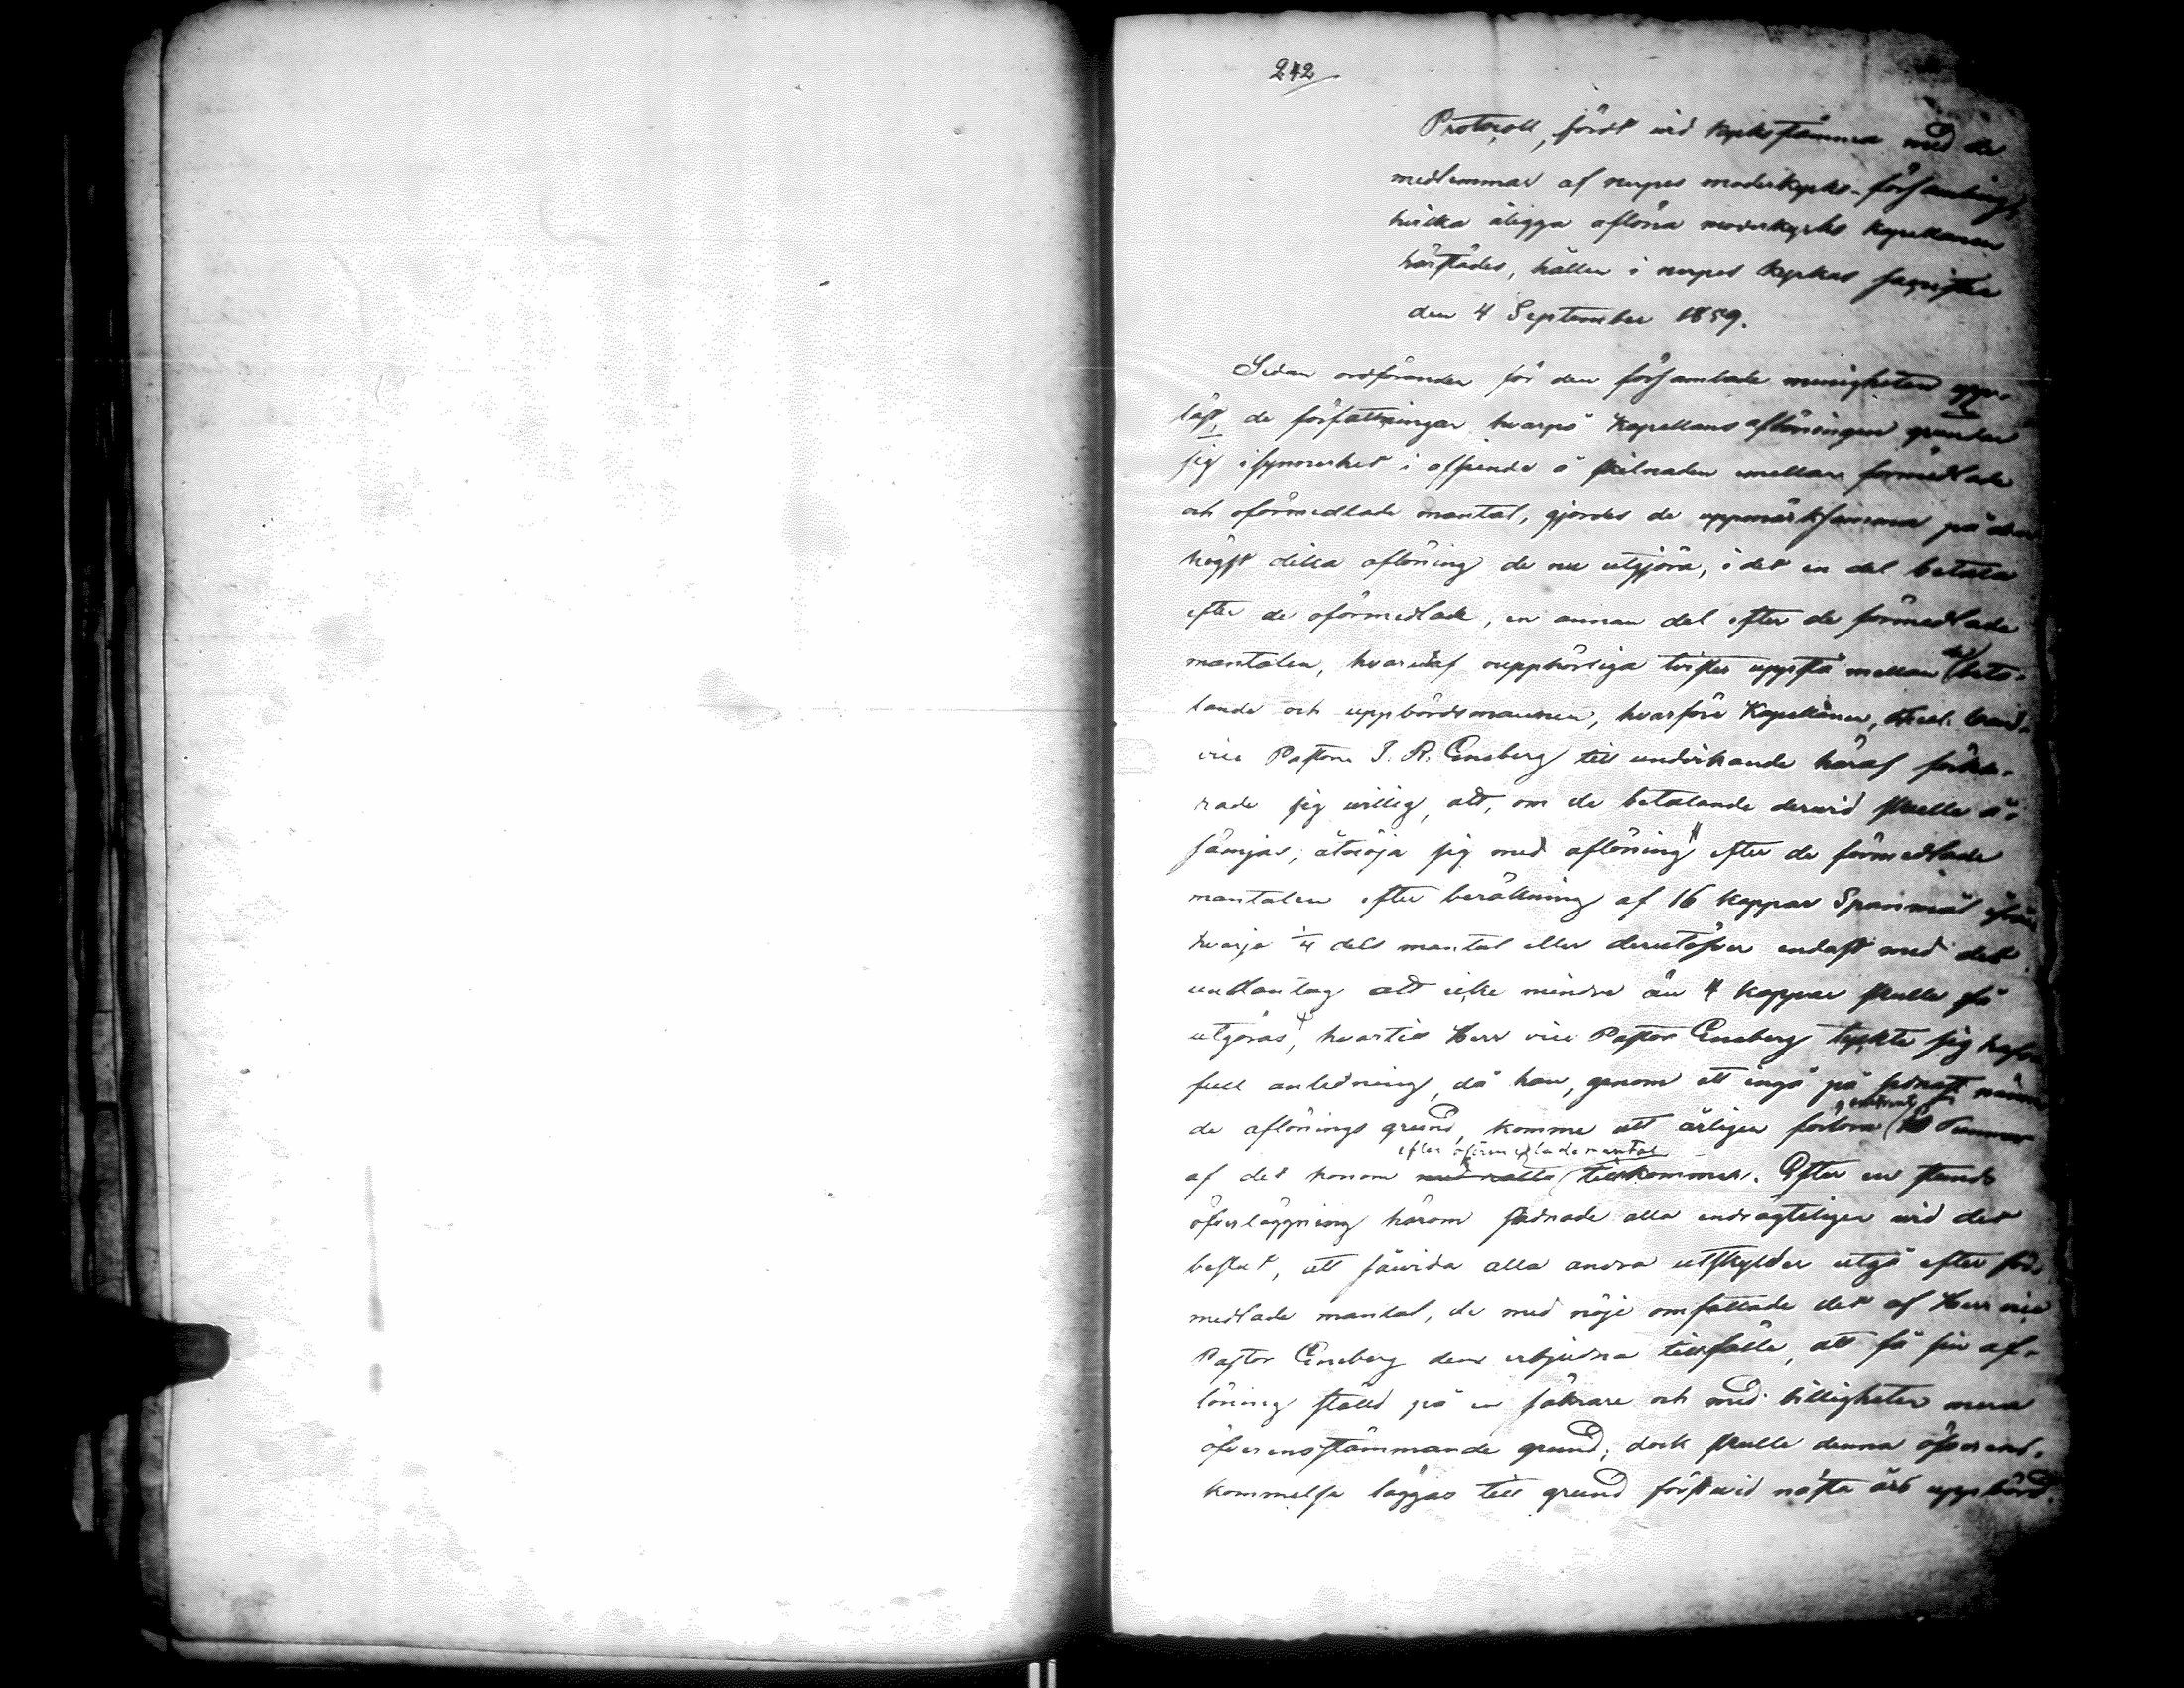 242
Protocoll, fördt wid kyrkstämma med de
medlemmar af nerpes moderkyrko-församling,
hvilka åligga aflöna moderkyrko kapellanen
härstädes, hållen i nerpes kyrkas sagristia
den 4 September 1859.
Sedan ordföranden för den församlade menigheten upp-
läst, de författningar hvarpå Kapellans aflöningen grundar
sig isynnerhet i afseende å skilnaden emellan förmedlade
och oförmedlade mantal, gjordes de uppmärksamma på den
högst olika aflöning de nu utgjöra, i det en del betala
efter de oförmedlade, en annan del efter de förmedlade
mantalen, hvaraf oupphörliga tvister uppstå mellan de beta-
lande och uppbördsmannen, hvarföre Kapellanen,
vice Pastorn J. R. Eneberg till undvikande häraf förkla-
rade sig willig, att, om de betalande derwid skulle å-
sämjas, åtnöja sig med aflöning efter de förmedlade
mantalen efter beräkning af 16 kappar Spanmål ifrån
hvarje 1/4 dels mantal eller derutöfver endast med det
undantag att icke mindre än 4 kappar skulle få
utgöras, hvartill Herr vice Pastor Eneberg tyckte sig hafva
full anledning, då han, genom att ingå på sednast nämn
de aflönings grund, komme att årligen förlora
af det honom med rätta efter oförmedlade mantal tillkommer. Efter en stunds
öfverläggning härom stadnade alla endrägteligen wid det
beslut, att såvida alla andra utskylder utgå efter för-
medlade mantal, de med nöje omfattade det af Herr vice
Pastor Eneberg dem erbjudna tillfälle, att få sin af-
löning ställd på en säkrare och med billigheten mera
öfverensstämmande grund; dock skulle denna öfverens-
kommelse läggas till grund först wid nästa års uppbörd.